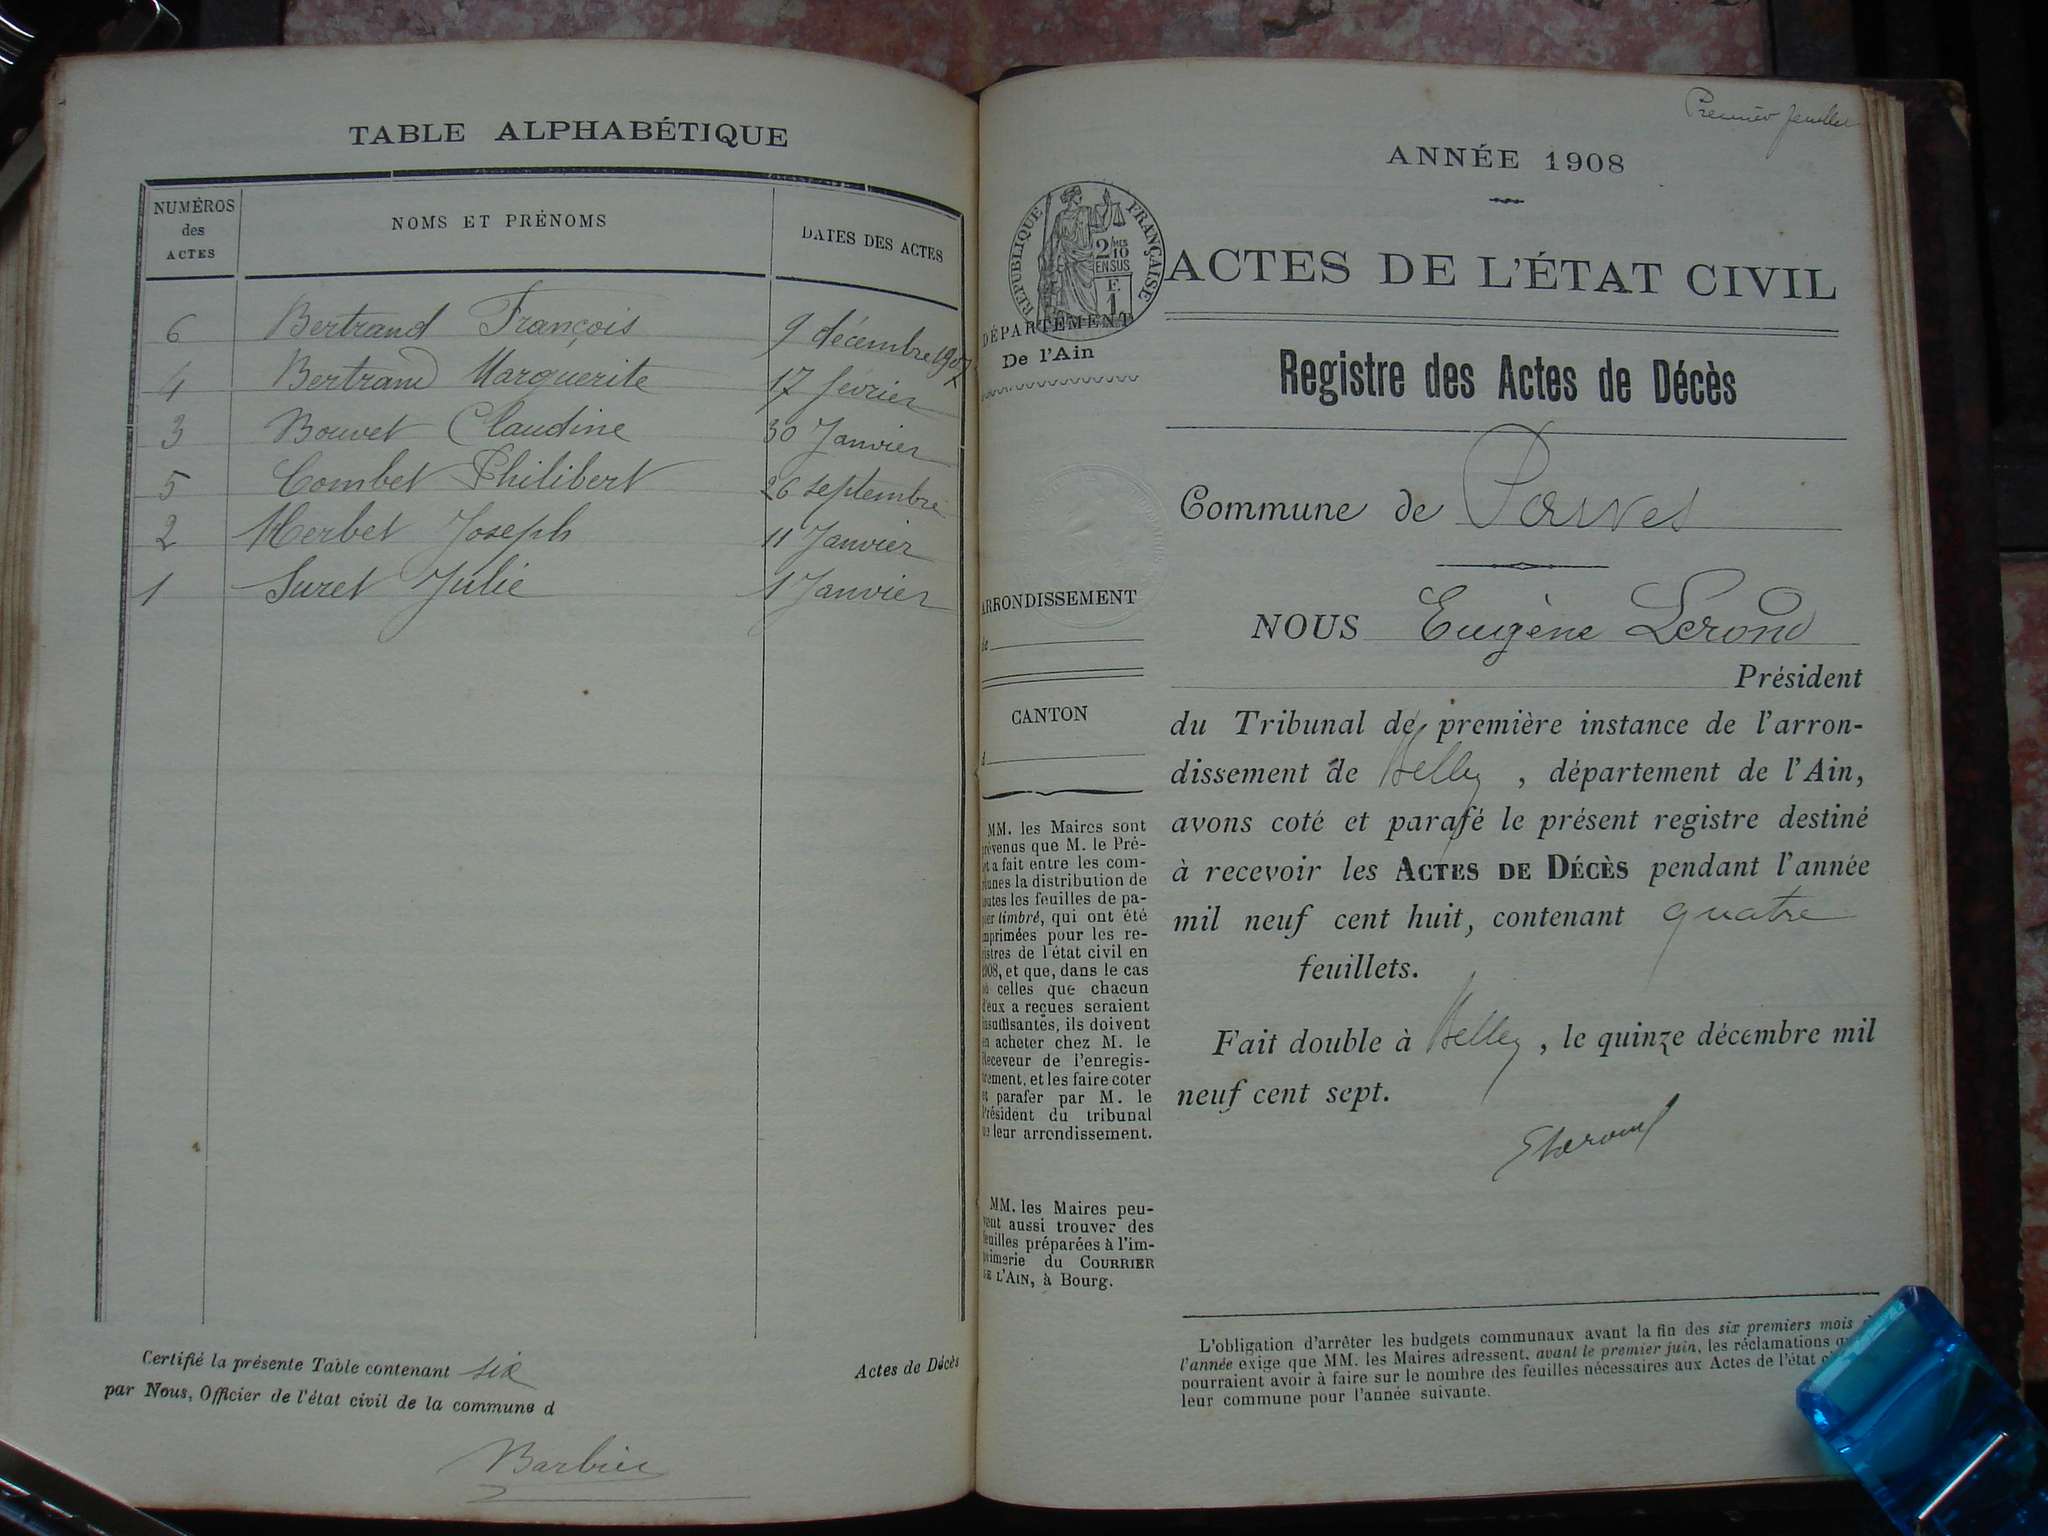 TABLE ALPHABÉTIQUE
NUMÉROS des ACTES
NOMS ET PRÉNOMS
DATES DES ACTES
6 Bertrand François 9 décembre 1907
4 Bertrand Marguerite 17 février
3 Bouvet Claudine 30 Janvier
5 Combet Philibert 26 septembre
2 Herbet Joseph 11 Janvier
1 Suret Julie 1 Janvier
Certifié la présente Table contenant six Actes de Décès
par Nous, Officier de l'état civil de la commune d
Barbier
Premier feuillet
ANNÉE 1908
RÉPUBLIQUE FRANÇAISE
2/10
EN SUS
F.
1
ACTES DE L'ÉTAT CIVIL
DÉPARTEMENT
De l'Ain
Registre des Actes de Décès
Commune de Parves
ARRONDISSEMENT
de
CANTON
d
NOUS Eugène Lerond
Président
du Tribunal de première instance de l'arron-
dissement de Belley, département de l'Ain,
avons coté et parafé le présent registre destiné
à recevoir les ACTES DE DÉCÈS pendant l'année
mil neuf cent huit, contenant quatre
feuillets.
Fait double à Belley, le quinze décembre mil
neuf cent sept.
MM. les Maires sont
prévenus que M. le Pré-
fet a fait entre les com-
munes la distribution de
toutes les feuilles de pa-
pier timbré, qui ont été
imprimées pour les re-
gistres de l'état civil en
1908, et que, dans le cas
où celles que chacun
d'eux a reçues seraient
insuffisantes, ils doivent
en acheter chez M. le
Receveur de l'enregis-
trement, et les faire coter
et parafer par M. le
Président du tribunal
de leur arrondissement.
MM. les Maires peu-
vent aussi trouver des
feuilles préparées à l'im-
primerie du COURRIER
DE L'AIN, à Bourg.
L'obligation d'arrêter les budgets communaux avant la fin des six premiers mois
l'année exige que MM. les Maires adressent, avant le premier juin, les réclamations
pourraient avoir à faire sur le nombre des feuilles nécessaires aux Actes de l'état
leur commune pour l'année suivante.